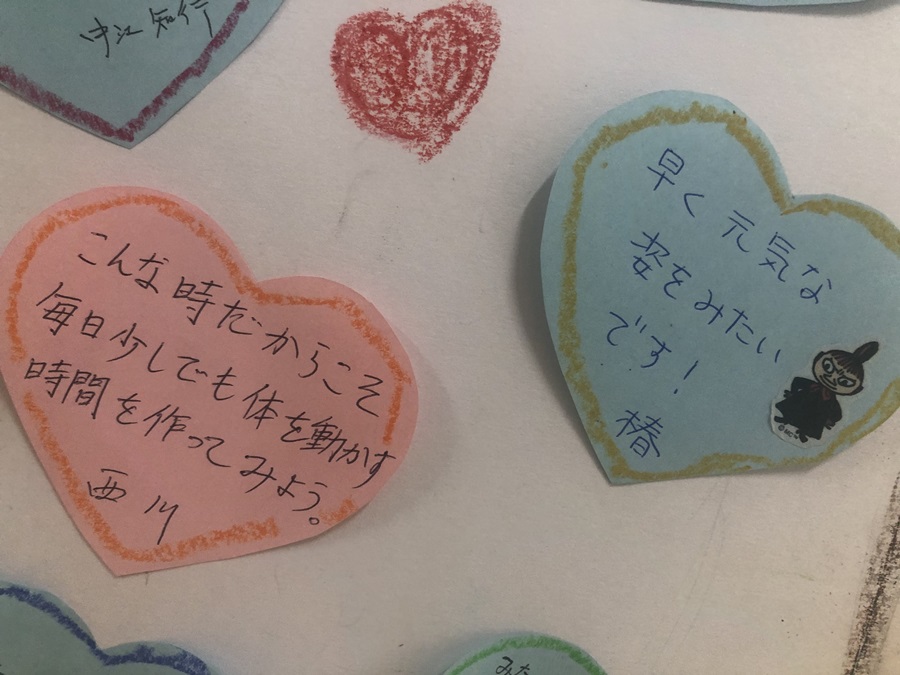 中江 知行
こんな時だからこそ
毎日少しでも体を動かす
時間を作ってみよう。
西川
早く元気な
姿をみたい
です!
椿
みな